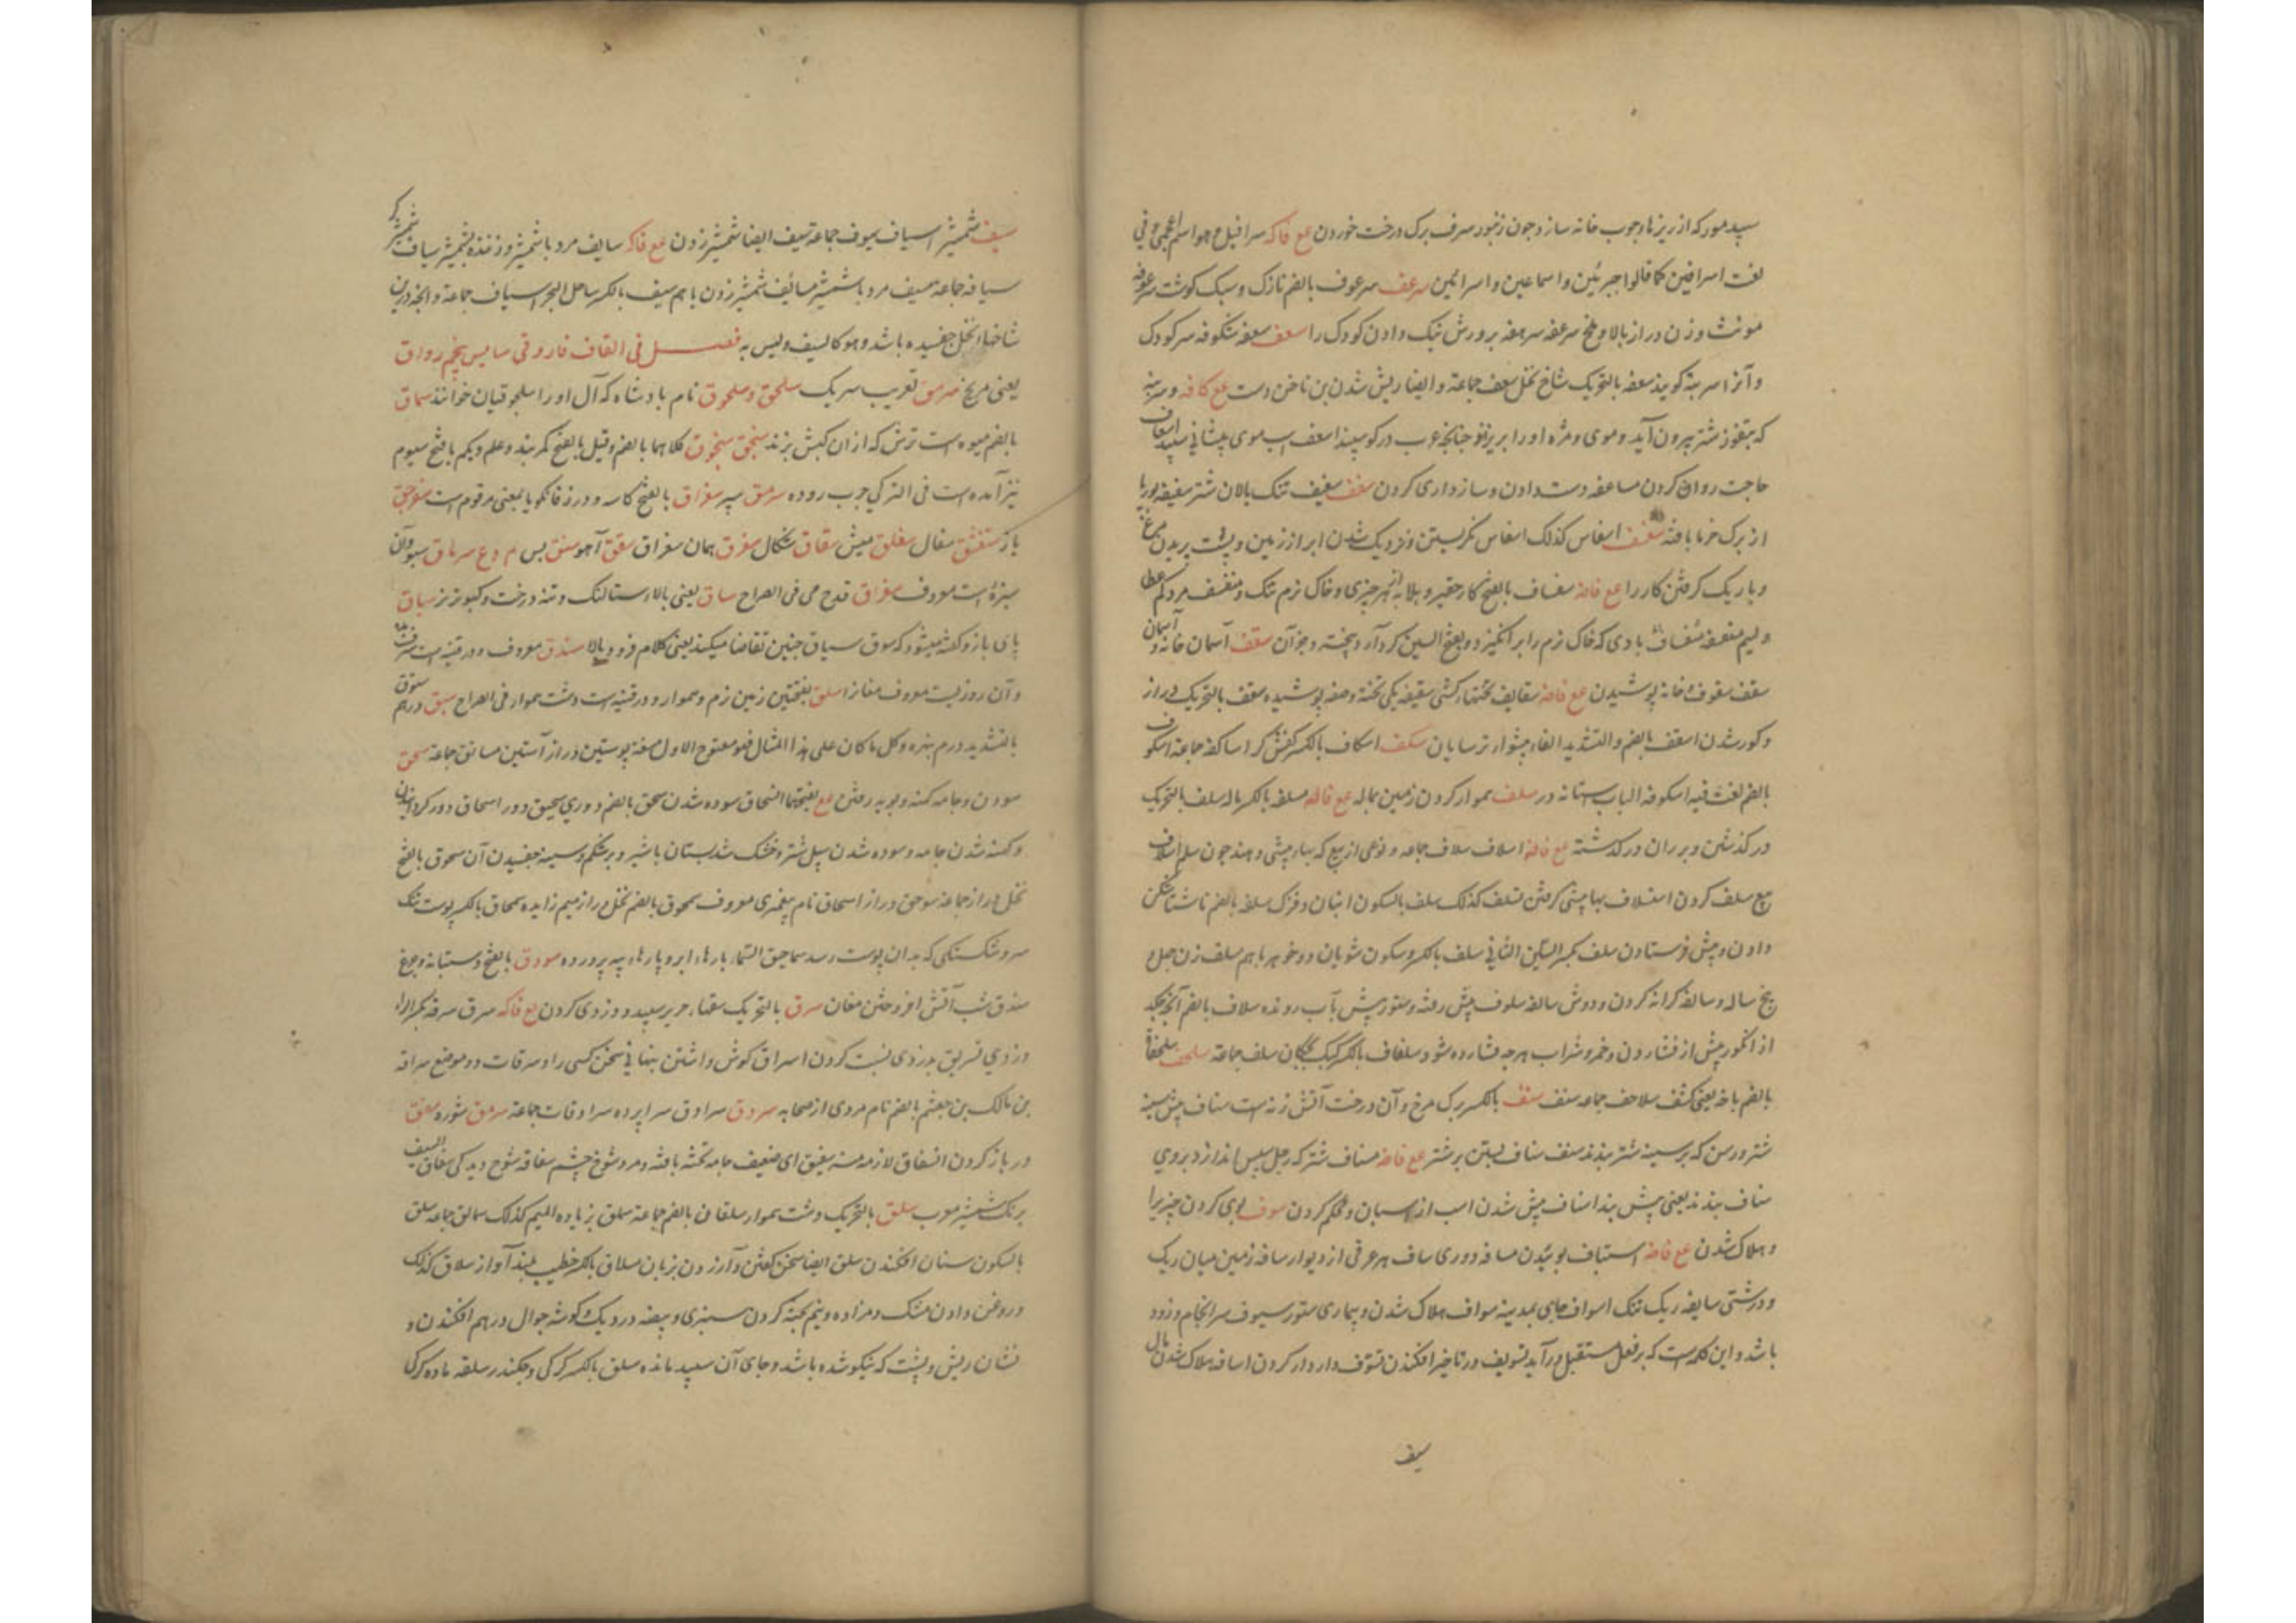 سپید مور که از ریزها چوب خانه سازد چون زنبور سرف برک درخت خوردن مع فاکه سرافیل هو اسم اعجمی و فی
لغت اسرافین کما قالوا جبرئین و اسماعین و اسرائین سرعف سرعوف بالضم نازک و سبک کوشت سرعوفه
مونث و زن دراز بالا و ملخ سرعفه سرهفه پرورش نیک دادن کودک را سعف سعفه شکوفه سر کودک
و آنرا سریه کویند سعفه بالتحریک شاخ نخل سعف جماعة و ایضا ریش شدن بن ناخن دست مع کافه و سریه
که بتفوز شتر بیرون آید و موی و مژه او را بریزاند چنانچه عرب در کوسپند اسعف اسپ موی پیشانی سپید اسعاف
حاجت روا کردن مساعفه دست دادن و سازداری کردن سفف سفیف تنک پالان شتر سفیفه بوریا
از برک خرما بافته اسفاف کذلک اسفاف نکریستن و نزدیک شدن ابر از زمین و پست پریدن مرغ
و باریک کرفتن کار را مع فاضه سفساف بالفتح کار حقیر و بلایه از هر چیزی و خاک نرم تنک و مسفسف مرد کم عطا
و لیم سفسفه سفساف بادی که خاک نرم را برانکیزد و بفتح السین کرد آرد پخته و جز آن سقف آسمان خانه و آسمان
سقف سقوف خانه پوشیدن مع فاضه سقایف تختهاء کشتی سقیفه یکی تخته و صفه پوشیده سقف بالتحریک دراز
و کور شدن اسقف بالضم و التشدید الفاء پیشواء ترسایان سکف اسکاف بالکسر کفش کر اساکفه جماعة اسکوف
بالضم لغت فیه اسکوفة الباب استانه در سلف هموار کردن زمین بماله مع فاکه مسلفه بالکسر ماله سلف بالتحریک
در کذشتن و پدران در کذشته مع فاضه اسلاف سلاف جماعه و نوعی از بیع که بهاء پیشی دهند چون سلم اسلاف
بیع سلف کردن استلاف بها پیشی کرفتن تسلف کذلک سلف بالسکون انبان بزرک سلفه بالضم ناشتا شکن
دادن و پیش فرستادن سلف بکسر السین الثانی سلف بالکسر و سکون شویان دو خواهر با هم مسلف زن چهل و
پنج ساله و سالفه کرانه کردن و دوش سالفه سلوف پیش رفته و ستور پیش بآب رونده سلاف بالضم آنچه چکد
از انکور پیش از فشاردن و خمر و شراب هر چه فشارده شود سلفاف بالکسر سلف جماعة سلحف سلحفاة
بالضم باخه یعنی کشف سلاحف جماعه سنف سنف بالکسر برک مرخ و آن درخت آتش زنه است سناف پیش سینه
شتر و رسن که بر سینه شتر بندند سنف سناف بستن بر شتر مع فاضه مسناف شتر که رحل پس اندازد بروی
سناف بندند یعنی پیش بند اسناف پیش شدن اسپ از اسپان و محکم کردن سوف بوی کردن چیز را
و هلاک شدن مع فاضه استیاف بوئیدن مسافه دوری ساف هر عرقی از دیوار سافه زمین میان ریک
و درشتی سایفه ریک تنک اسواف جای بمدینه سواف هلاک شدن و بیماری ستور سیوف سرانجام و زود
باشد و این کلمه است که بر فعل مستقبل درآید تسویف در تاخیر افکندن تسوف دار دار کردن اسافه هلاک شدن مال
سیف
سیف شمشیر اسیاف سیوف جماعة سیف ایضا شمشیر زدن مع فاکه سایف مرد با شمشیر و زننده بشمشیر سیاف شمشیر کر
سیافه جماعه مسیف مرد با شمشیر مسائف شمشیر زدن با هم سیف بالکسر ساحل البحر اسیاف جماعة و آنچه در بن
شاخهاء نخل چفسیده باشد و هو کالیف و لیس به فصل فی القاف فاروقی سابس پنجم رواق
یعنی مریخ سرمق تعریب سریک سلحق و سلجوق نام پادشاه که آل او را سلجوقیان خوانند سماق
بالضم میوه است ترش که از ان کبش پزند سنجق سنجوق کلاهما بالضم و قیل بالفتح کمر بند و علم و یکم بالفتح سیوم
نیز آمده است فی الترکی چرب روده سرمق سپر سغراق بالفتح کاسه و در زفانکویا بمعنی مرقوم است سغرجق
باز سنقق سفال سغلق میش سقاق شکال سغرق همان سغراق سقق آهو سنق بس م دع سرماق سبو و آن
سبزه است معروف سغراق قدح می فی الصراح ساق یعنی بالاء ستالنک و تنه درخت و کبوتر نر سیاق
پای باز و کفته میشود که سوق سیاق چنین تقاضا میکند یعنی کلام فرود بالا سندق معروف و در قنیه است
و آن روزیست معروف مغانرا سلق بفتحتین زمین نرم و هموار و در قنیه است دشت هموار فی الصراح ستق ستوق درم
بالتشدید درم بنهره و کل ما کان علی هذا المثال فهو مفتوح الاول مستقه پوستین دراز آستین مساتق جماعة سحق
سودن و جامه کهنه و پویه رفتن مع بفتحتهما انسحاق سوده شدن سحق بالضم دوری سحیق دور اسحاق دور کردانیدن
و کهنه شدن جامه و سوده شدن سپل شتر و خشک شدن پستان با شیر و بر شکم و سینه چفسیدن آن سحوق بالفتح
نخل دراز جماعة سوحق دراز اسحاق نام پیغمبری معروف سمحوق بالضم نخل دراز میم زایده سمحاق بالکسر پوست تنک
سر و شکستکی که بدان پوست رسد سماحیق السماء پارهاء ابر و پارهاء پیه پرورده سودق بالفتح دستبانه و چرغ
سدق شب آتش افروختن مغان سرق بالتحریک سقباء حریر سپید و دزدی کردن مع فاکه سرق سرقه بکسر الراء
دزدی تسریق بدزدی نسبت کردن استراق کوش داشتن پنهانی سخن کسی را و سرقات دو موضع سراقه
بن مالک بن جعشم بالضم نام مردی از صحابه سردق سرادق سراپرده سرادقات جماعة سرمق شوره سفق
در باز کردن انسفاق لازمه منه سفیق ای ضعیف جامه تخته بافته و مرد شوخ چشم سفاقه شوخ دیدکی سفاق السیف
برنک شمشیر معرب سلق بالتحریک دشت هموار سلقان بالضم جماعة سملق بزیاده المیم کذلک سمالق جماعه سلق
بالسکون ستان افکندن سلق ایضا سخن کفتن و آزردن بزبان مسلاق بالکسر خطیب بلند آواز سلاق کذلک
و روغن دادن مشک و مزاده و نیم پخته کردن سبزی و بیضه در دیک و کوشه جوال درهم افکندن و
نشان ریش و پشت که نیکو شده باشد و جای آن سپید مانده سلق بالکسر کرکی و چکندر سلقه ماده کرک